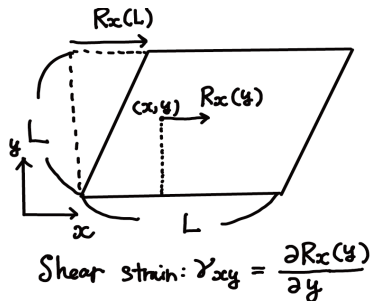 Rx(L)
(x,y) Rx(y)
L
y
x
L
Shear strain: γxy = ∂Rx(y)/∂y